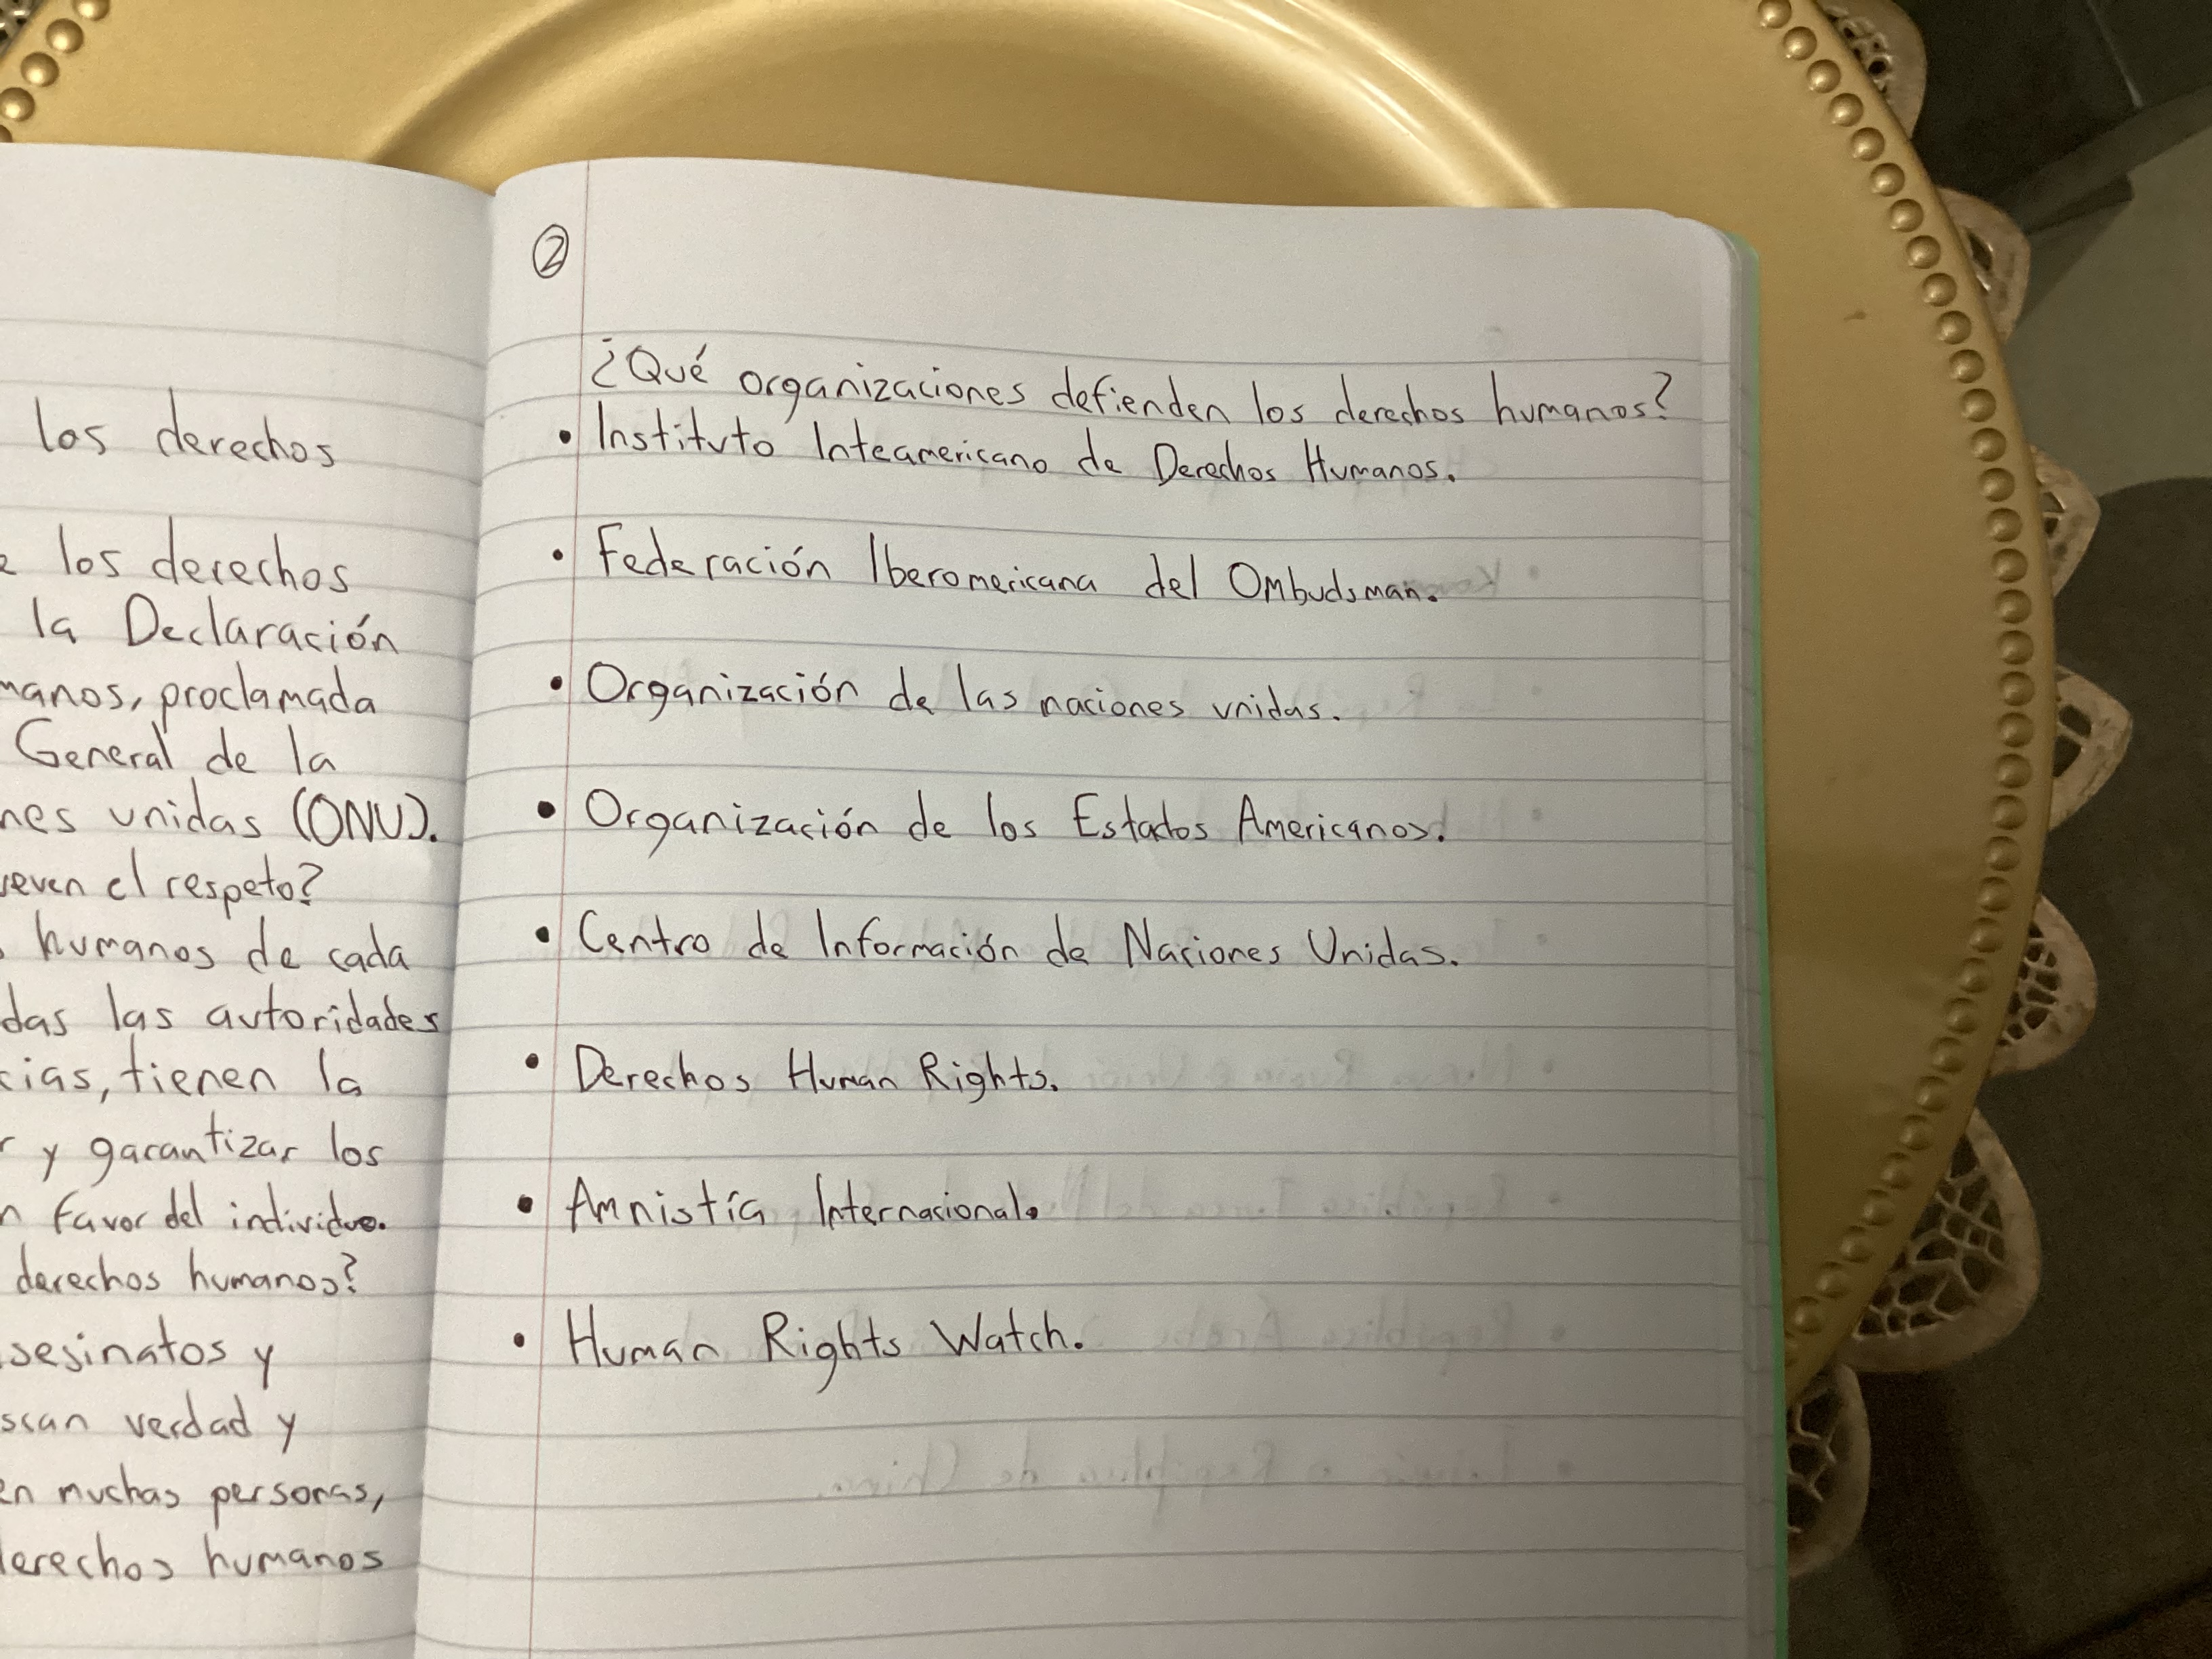 los derechos
los derechos
la Declaración
manos, proclamada
General de la
nes unidas (ONU).
el respeto?
humanos de cada
das las autoridades
cias, tienen la
r y garantizar los
n favor del individuo.
derechos humanos?
sesinatos y
scan verdad y
en muchas personas,
derechos humanos
2
¿Qué organizaciones defienden los derechos humanos?
• Instituto Inteamericano de Derechos Humanos.
• Federación Iberomericana del Ombudsman.
• Organización de las naciones unidas.
• Organización de los Estados Americanos.
• Centro de Información de Naciones Unidas.
• Derechos Human Rights.
• Amnistía Internacional.
• Human Rights Watch.